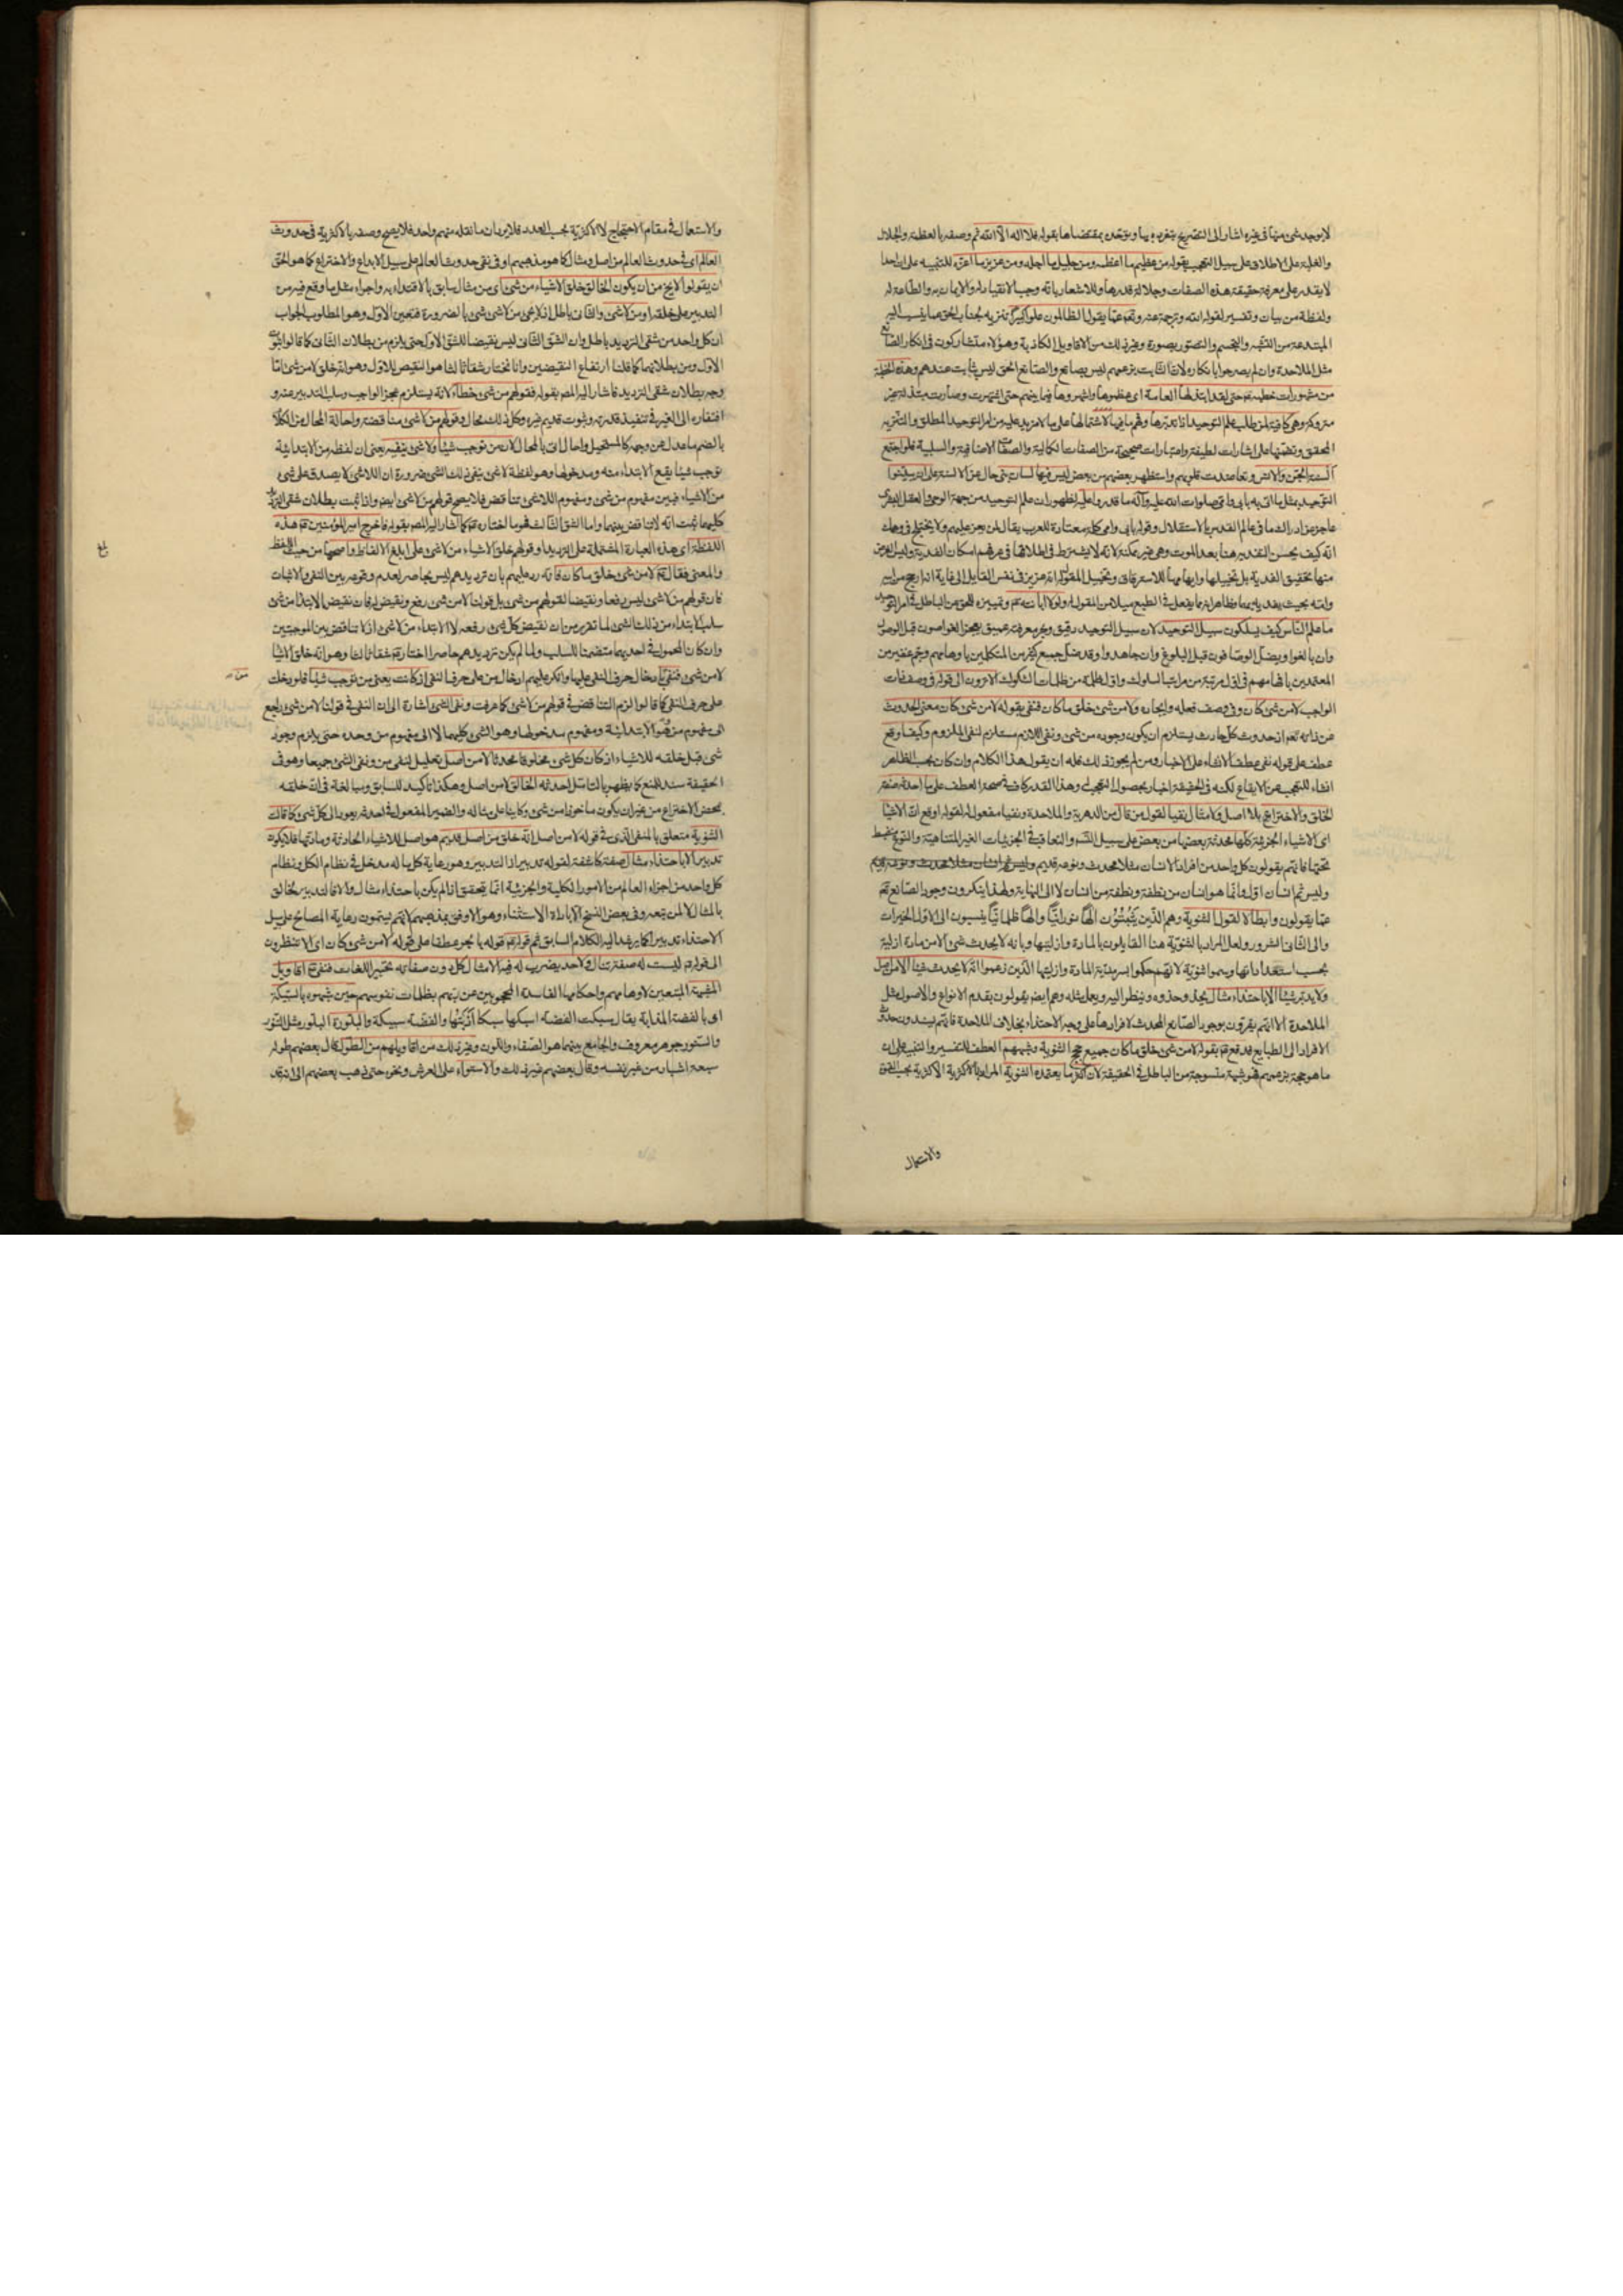 لا يوجد شئ منها في غيره اشار الى التصريح بتفرده بها وتوحده بمقتضاها بقوله فلا اله الا الله ثم وصفه بالعظمة والجلال
والغلبة على الاطلاق على سبيل التعجب بقوله من عظيم ما اعظمه ومن جليل ما اجله ومن عزيز ما اعزه للتنبيه على ان احدا
لا يقدر على معرفة حقيقة هذه الصفات وجلالة قدرها وللاشعار بانه وجب الانقياد له والايمان به والطاعة له
ولفظة من بيان وتفسير لقوله الله وترجمة عنه وتعالى عما يقول الظالمون علوا كبيرا تنزيه لجناب الحق عما ينسب اليه
المبتدعة من التشبه والتجسم والتصور بصورة وغير ذلك من الاقاويل الكاذبة وهؤلاء متشاركون في انكار الصانع
مثل الملاحدة وان لم يصرحوا بانكاره لان الثابت بزعمهم ليس بصانع والصانع الحق ليس بثابت عندهم وهذه الخطبة
من مشهورات خطبه حتى لقد ابتذلها العامة اى عظموها واشهروها فيما بينهم حتى اشتهرت وصارت مبتذلة غير
متروكة وهى كافية لمن طلب علم التوحيد اذا تدبرها وفهم ما فيها لاشتمالها على ما لا مزيد عليه من امر التوحيد المطلق والتنزيه
المحقق وتضمنها على اشارات لطيفة واعتبارات صحيحة من الصفات الكمالية والصفات الاضافية والسلبية فلو اجتمع
السنة الجن والانس وتعاضدت قلوبهم واستظهر بعضهم من بعض ليس فيها لسان نبى حال عن الالسنة على ان يبينوا
التوحيد بمثل ما اتى به بابى وامى صلوات الله عليه وآله ما قدروا عليه لظهور ان علم التوحيد من جهة الوحى والعقل البشرى
عاجز عن ادراك ما في عالم القدس بالاستقلال وقوله بابى وامى كلمة معتادة للعرب يقال لمن يعز عليهم ولا يختلج في وهمك
انه كيف يحسن التقدير هنا بعد الموت وهى غير ممكنة لانه لا يشترط في اطلاقها في عرفهم امكان الفدية وليس الغرض
منها تحقيق الفدية بل تخييلها وايهامها للاسترقاق وتخييل المقول له انه عزيز في نفس القايل الى غاية انه ارجح من ابيه
وامه بحيث يفديه بهما وظاهر انه مما يفعل في الطبع ميلا من المقول له ولولا ابانته وتمييزه للحق من الباطل في امر التوحيد
ما علم الناس كيف يسلكون سبيل التوحيد لان سبيل التوحيد دقيق وبحر معرفته عميق يعجز الغواصون قبل الوصول
وان بالغوا ويضل الوصافون قبل البلوغ وان جاهدوا وقد ضل جميع كثير من المتكلمين باوهامهم وجم غفير من
المعتمدين بافهامهم في اول مرتبة من مراتب السلوك واول ظلمة من ظلمات الشكوك الا ترون الى قوله في وصف ذات
الواجب لا من شئ كان وفى وصف فعله وايجاده ولا من شئ خلق ما كان فنفى بقوله لا من شئ كان معنى الحدوث
عن ذاته نعم اذ حدوث كل حادث يستلزم ان يكون وجوده من شئ ونفى اللازم مستلزم لنفى الملزوم وكيف اوقع
عطف على قوله نفى عطف الانشاء على الاخبار ومن لم يجوز ذلك فله ان يقول هذا الكلام وان كان بحسب الظاهر
انشاء للتعجب عن الايقاع لكنه في الحقيقة اخبار بحصول التعجب وهذا القدر كاف لصحة العطف على ما احدثه صفة
الخلق والاختراع بلا اصل ولا مثال نفيا لقول من قال من الدهرية والملاحدة ونفيا مفعول له لقوله اوقع ان الاشياء
اى الاشياء الجزئية كلها محدثة بعضها من بعض على سبيل التسلسل والتعاقب في الجزئيات الغير المتناهية والنوع منحفظ
تحتها فانهم يقولون كل واحد من افراد الانسان مثلا محدث ونوعه قديم
وليس ثم انسان اول وانما هو انسان من نطفة ونطفة من انسان لا الى النهاية ولهذا ينكرون وجود الصانع تعالى
عما يقولون وابطالا لقول الثنوية وهم الذين يثبتون الها نورانيا والها ظلمانيا ينسبون الى الاول الخيرات
والى الثانى الشرور ولعل المراد بالثنوية هنا القايلون بالمادة وازليتها وبانه لا يحدث شئ الا من مادة ازلية
بحسب استعداداتها وسموا ثنوية لانهم حكموا بسرمدية المادة وازليتها الذين زعموا انه لا يحدث شيئا الا من اصل
ولا يدبر شيئا الا باحتذاء مثال يحذو حذوه وينظر اليه ويعمل مثله وهم ايضا يقولون بقدم الانواع والاصول مثل
الملاحدة الا انهم يقرون بوجود الصانع المحدث لافرادها على وجه الاحتذاء بخلاف الملاحدة فانهم يسندون حدوث
الافراد الى الطبايع فدفع بقوله لا من شئ خلق ما كان جميع حجج الثنوية وشبههم العطف للتفسير والتنبيه على ان
ما هو حجة بزعمهم فهو شبهة منسوجة من الباطل في الحقيقة لان اكثر ما يعتمده الثنوية المراد بالاكثرية الاكثرية بحسب القوة
والاستعمال
والاستعمال في مقام الاحتجاج لا الاكثرية بحسب العدد فلا يرد ان ما نقله منهم واحد فلا يصح وصفه بالاكثرية في حدوث
العالم اى في حدوث العالم من اصل ومثال كما هو مذهبهم او في نفى حدوث العالم على سبيل الابداع والاختراع كما هو الحق
ان يقولوا لا يخ من ان يكون الخالق خلق الاشياء من شئ اى من مثال سابق بالاقتداء به واجراء مثل ما وقع فيه من
التدبير على خلقه او من لا شئ والثانى باطل اذ لا يجئ من لا شئ شئ بالضرورة فتعين الاول وهو المطلوب والجواب
ان كل واحد من شقى الترديد باطل وان الشق الثانى ليس نقيضا للشق الاول حتى يلزم من بطلان الثانى كما قالوا ثبوت
الاول ومن بطلانهما كما قلنا ارتفاع النقيضين وانا نختار شقا ثالثا هو النقيض للاول وهو انه خلق لا من شئ اما
وجه بطلان شقى الترديد فاشار اليه المص بقوله فقولهم من شئ خطأ لانه يستلزم عجز الواجب وسلب التدبير عنه و
افتقاره الى الغير في تنفيذ قدرته وثبوت قديم غيره وكل ذلك محال وقولهم من لا شئ مناقضة واحالة المحال من الكلام
بالضم ما عدل عن وجهه كالمستحيل واحال اتى بالمحال لان من توجب شيئا ولا شئ ينفيه يعنى ان لفظة من الابتدائية
توجب شيئا يقع الابتداء منه ومدخولها وهو لفظة لا شئ ينفى ذلك الشئ ضرورة ان اللاشئ لا يصدق على شئ
من الاشياء فبين مفهوم من شئ ومفهوم اللاشئ تناقض فلا يصح قولهم من لا شئ ايضا واذا ثبت بطلان شقى الترديد
كليهما ثبت انه لا تناقض بينهما واما الشق الثالث فهو ما اختاره كما اشار اليه المص بقوله فاخرج امير المؤمنين هذه
اللفظة اى هذه العبارة المشتملة على الترديد وقولهم خلق الاشياء من لا شئ على ابلغ الالفاظ واصحها من حيث اللفظ
والمعنى فقال لا من شئ خلق ما كان فانه رد عليهم بان ترديدهم ليس بحاصر لعدم وقوعه بين النفى والاثبات
فان قولهم من لا شئ ليس رفعا ونقيضا لقولهم من شئ بل قولنا لا من شئ رفع ونقيض له فان نقيض الابتداء من شئ
سلب الابتداء من ذلك الشئ لما تقرر من ان نقيض كل شئ رفعه لا الابتداء من لا شئ اذ لا تناقض بين الموجبتين
وان كان المحمول في احديهما متضمنا للسلب ولما لم يكن ترديدهم حاصرا اختار شقا ثالثا وهو انه خلق الاشياء
لا من شئ فنفى بادخال حرف النفى عليها وانكر عليهم ادخال من على حرف النفى اذ كانت يعنى من توجب شيئا فلو دخلت
على حرف النفى كما قالوا لزم التناقض في قولهم من لا شئ كما عرفت ونفى الشئ اشارة الى ان النفى في قولنا لا من شئ راجع
الى مفهوم من وهو الابتدائية ومفهوم مدخولها وهو الشئ كليهما لا الى مفهوم من وحده حتى يلزم وجود
شئ قبل خلقه للاشياء اذ كان كل شئ مخلوقا محدثا لا من اصل تعليل لنفى من ونفى الشئ جميعا وهو في
الحقيقة سند للمنع كما يظهر بالتامل احدثه الخالق لا من اصل وهكذا تاكيد للسابق ومبالغة في ان خلقه
بمحض الاختراع من غير ان يكون ماخوذا من شئ وكاينا على مثاله والضمير المفعول في احدثه يعود الى كل شئ كما قالت
الثنوية متعلق بالمنفى الذى في قوله لا من اصل انه خلق من اصل قديم هو اصل للاشياء الحادثة ومادتها فلا يكون
تدبير الا باحتذاء مثال صفة كاشفة لقوله تدبيرا اذ التدبير وهو رعاية كل ما له مدخل في نظام الكل ونظام
كل واحد من اجزاء العالم من الامور الكلية والجزئية انما يتحقق اذا لم يكن باحتذاء مثال والا فالتدبير لخالق
بالمثال لا لمن تبعه وفى بعض النسخ الا باداة الاستثناء وهو الاوفق بمذهبهم لانهم يسمون رعاية المصالح على سبيل
الاحتذاء تدبيرا كما يرشد اليه الكلام السابق ثم قوله قوله بالجر عطفا على قوله لا من شئ كان اى الا تنظرون
الى قوله ليست له صفة تنال ولا حد يضرب له فيه الامثال كل دون صفاته تحبير اللغات فنفى اقاويل
المشبهة المتبعين لاوهامهم واحكامها الفاسدة المحجوبين عن ربهم بظلمات نفوسهم حين شبهوه بالسبيكة
اى بالفضة المذابة يقال سبكت الفضة اسبكها سبكا اذبتها والفضة سبيكة والبلورة البلور مثل التنور
والسنور جوهر معروف والجامع بينهما هو الصفاء واللون وغير ذلك من اقاويلهم من الطول كقال بعضهم طوله
سبعة اشبار من غير نفسه وقال بعضهم غير ذلك والاستواء على العرش ونحوه حتى ذهب بعضهم الى انه قد
بلغ